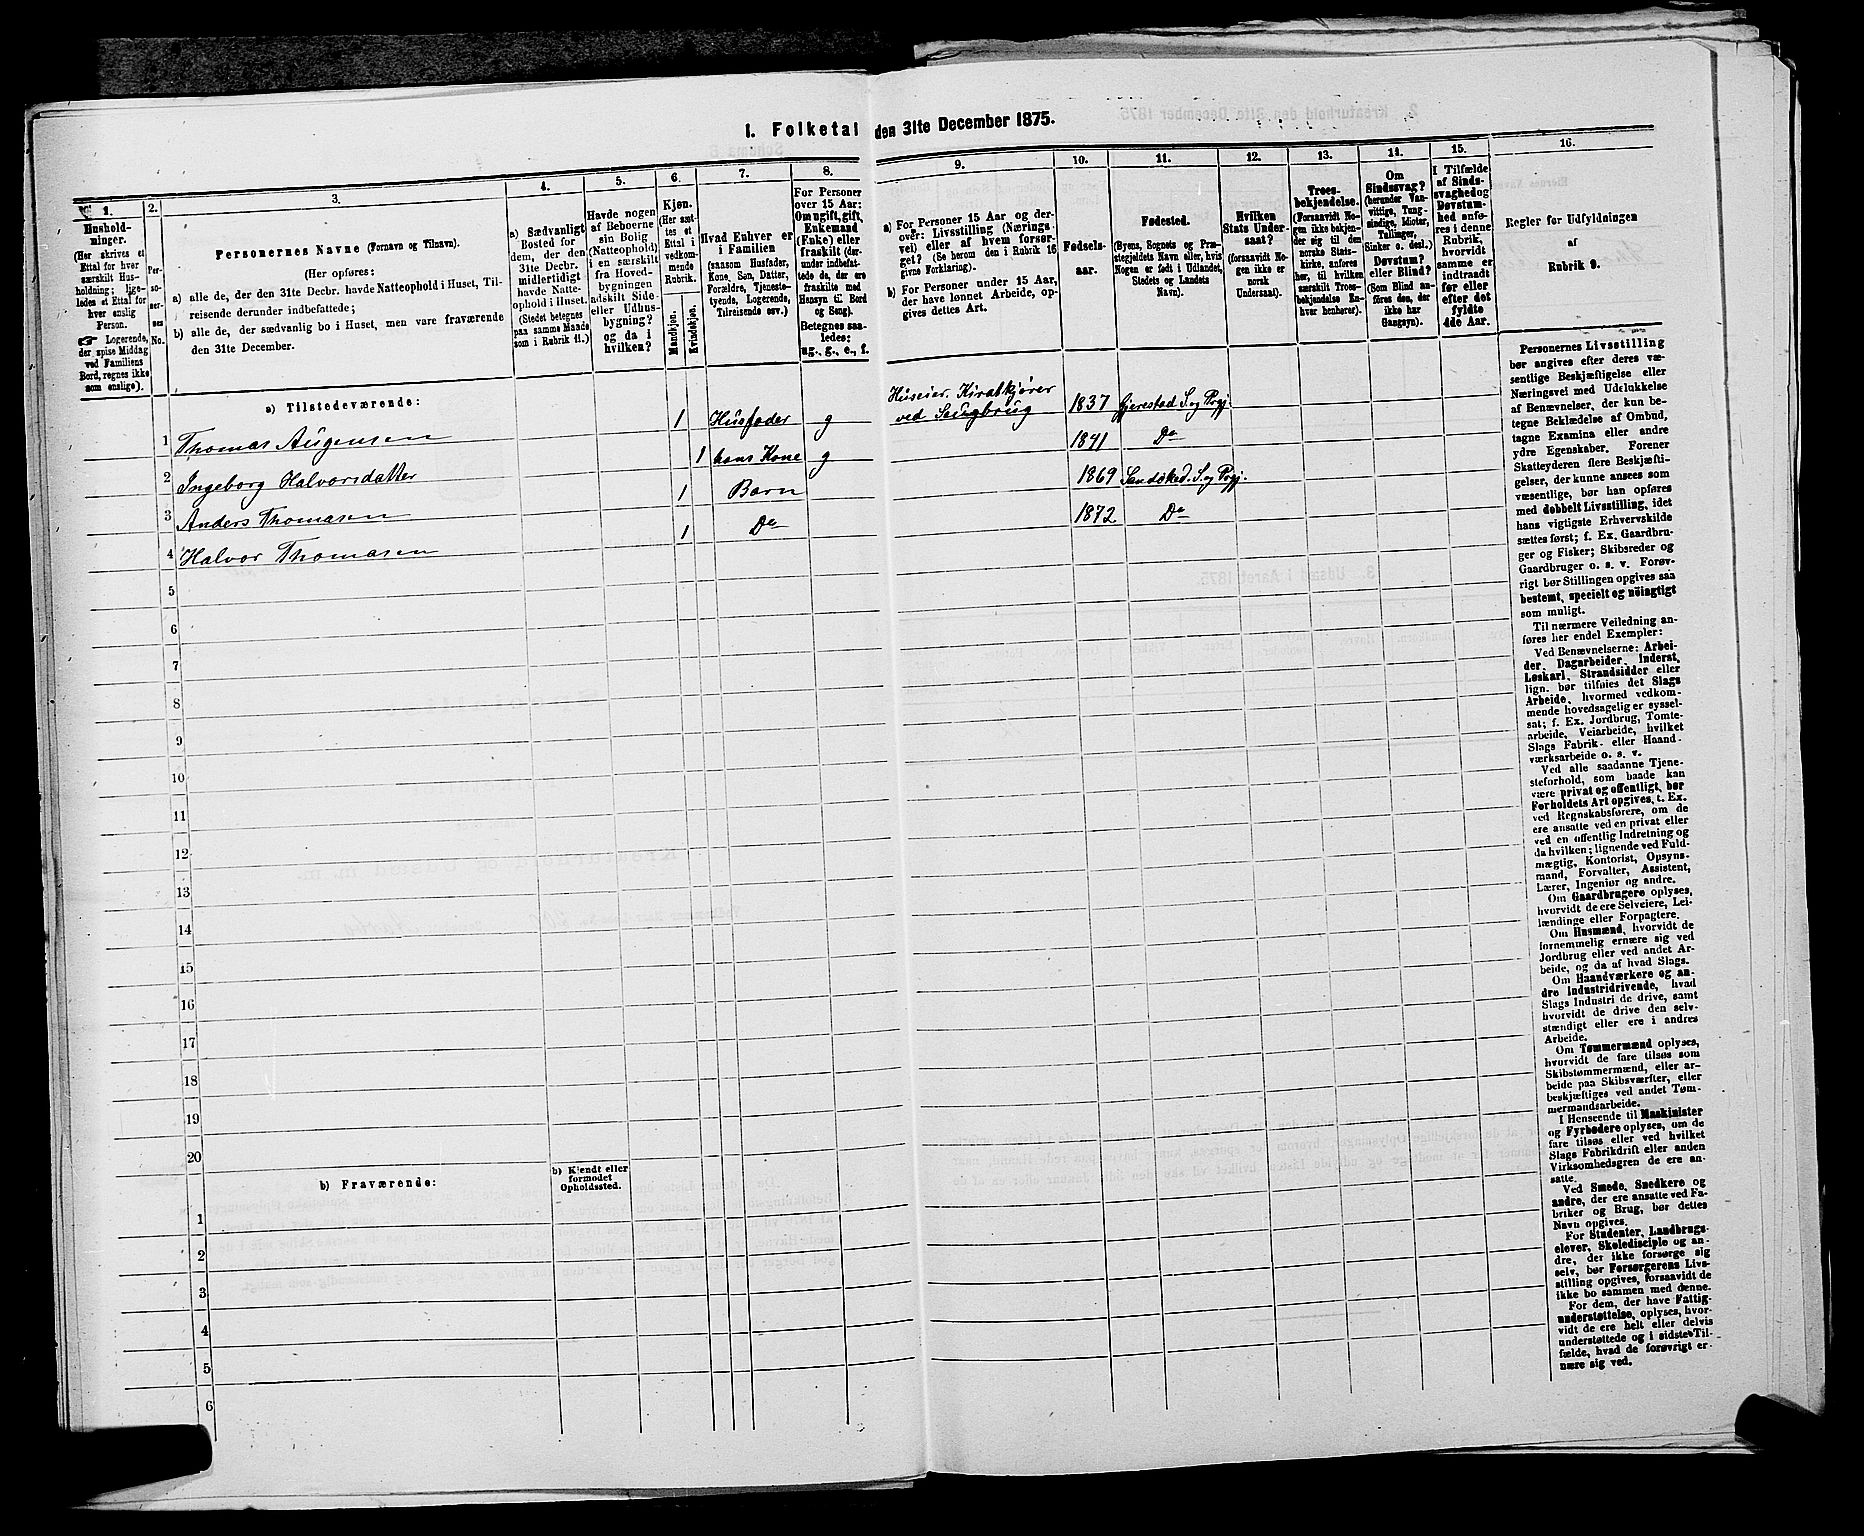 1. Folketal den 31te December 1875.
1.
Hushold-
ninger.
(Her skrives et
Ettal for hver
særskilt Hus-
holdning; lige-
ledes et Ettal for
hver enslig
Person.
Logerende,
der spise Middag
ved Familiens
Bord, regnes ikke
som enslige).
2.
Per-
so-
ner-
nes
No.
3.
Personernes Navne (Fornavn og Tilnavn).
(Her opføres:
a) alle de, der den 31te Decbr. havde Natteophold i Huset, Til-
reisende derunder indbefattede;
b) alle de, der sædvanlig bo i Huset, men vare fraværende
den 31te December.
4.
a) Sædvanligt
Bosted for
dem, der den
31te Decbr.
midlertidigt
havde Natte-
ophold i Huset.
(Stedet betegnes
paa samme Maade
som i Rubrik 11.)
5.
Havde nogen
af Beboerne
sin Bolig
(Natteophold)
i en særskilt
fra Hoved-
bygningen
adskilt Side-
eller Udhus-
bygning?
og da i
hvilken?
6.
Kjøn.
(Her sæt-
tes et
Ettal i
vedkom-
mende
Rubrik.
Mandkjøn.
Kvindekjøn.
7.
Hvad Enhver er
i Familien
(saasom Husfader,
Kone, Søn, Datter,
Forældre, Tjeneste-
tyende, Logerende,
Tilreisende osv.)
8.
For Personer
over 15 Aar:
Om ugift, gift,
Enkemand
(Enke) eller
fraskilt (der-
under indbefat-
tede de, der ere
fraskilte med
Hensyn til Bord
og Seng).
Betegnes saa-
ledes:
ug., g., e., f.
9.
a) For Personer 15 Aar og der-
over: Livsstilling (Nærings-
vei) eller af hvem forsør-
get? (Se herom den i Rubrik 16
givne Forklaring).
b) For Personer under 15 Aar,
der have lønnet Arbeide, op-
gives dettes Art.
10.
Fødsels-
aar.
11.
Fødested.
(Byens, Sognets og Præ-
stegjeldets Navn eller, hvis
Nogen er født i Udlandet,
Stedets og Landets
Navn).
12.
Hvilken
Stats Under-
saat?
(forsaavidt No-
gen ikke er
norsk
Undersaat).
13.
Troes-
bekjendelse.
(Forsaavidt No-
gen ikke bekjen-
der sig til den
norske Stats-
kirke, anføres
her, til hvilken
særskilt Troes-
bekjendelse En-
hver henhører).
14.
Om
Sindssvag?
(herunder Van-
vittige, Tung-
sindige, Idioter,
Tullinger,
Sinker o. desl.)
Døvstum?
eller Blind?
(Som Blind an-
føres den, der
ikke har
Gangsyn).
15.
I Tilfælde
af Sinds-
svaghed og
Døvstum-
hed anfø-
res i denne
Rubrik,
hvorvidt
samme er
indtraadt
før eller
efter det
fyldte
4de Aar.
16.
Regler for Udfyldningen
af
Rubrik 9.
a) Tilstedeværende:
1 Thomas Augensen 1 Husfader g Huseier. ved Saugbrug 1837 Gjerestad S. og Prgj.
2 Ingeborg Halvorsdatter 1 hans Kone g 1841 Do
3 Anders Thomasen 1 Barn 1869 Søndeled. S. og Prgj.
4 Halvor Thomasen 1 Do 1872 Do
5
6
7
8
9
10
11
12
13
14
15
16
17
18
19
20
b) Fraværende:
b) Kjendt eller
formodet
Opholdssted.
1
2
3
4
5
6
Personernes Livsstilling
bør angives efter deres væ-
sentlige Beskjæftigelse eller
Næringsvei med Udelukkelse
af Benævnelser, der kun be-
tegne Beklædelse af Ombud,
tagne Examina eller andre
ydre Egenskaber. Forener
Skatteyderen flere Beskjæfti-
gelser, der kunne ansees som
væsentlige, bør han opføres
med dobbelt Livsstilling, idet
hans vigtigste Erhvervskilde
sættes først; f. Ex. Gaardbru-
ger og Fisker; Skibsreder og
Gaardbruger o. s. v. Forøv-
rigt bør Stillingen opgives saa
bestemt, specielt og nøiagtigt
som muligt.
Til nærmere Veiledning an-
føres her endel Exempler:
Ved Benævnelserne: Arbei-
der, Dagarbeider, Inderst,
Løskarl, Strandsidder eller
lign. bør tilføies det Slags
Arbeide, hvormed vedkom-
mende hovedsagelig er syssel-
sat; f. Ex. Jordbrug, Tomte-
arbeide, Veiarbeide, hvilket
Slags Fabrik- eller Haand-
værksarbeide o. s. v.
Ved alle saadanne Tjene-
steforhold, som baade kan
være privat og offentligt, bør
Forholdets Art opgives, t. Ex.
ved Regnskabsførere, om de
ere ansatte ved en privat eller
ved en offentlig Indretning og
da hvilken; lignende ved Fuld-
mægtig, Kontorist, Opsyns-
mand, Forvalter, Assistent,
Lærer, Ingeniør og andre.
Om Gaardbrugere oplyses,
hvorvidt de ere Selveiere, Lei-
lændinge eller Forpagtere.
Om Husmænd, hvorvidt de
fornemmelig ernære sig ved
Jordbrug eller ved andet Ar-
beide, og da af hvad Slags.
Om Haandværkere og an-
dre Industridrivende, hvad
Slags Industri de drive, samt
hvorvidt de drive den selv-
stændigt eller ere i andres
Arbeide.
Om Tømmermænd oplyses,
hvorvidt de fare tilsøs som
Skibstømmermænd, eller ar-
beide paa Skibsværfter, eller
beskjæftiges ved andet Tøm-
mermandsarbeide.
I Henseende til Maskinister
og Fyrbødere oplyses, om de
fare tilsøs eller ved hvilket
Slags Fabrikdrift eller anden
Virksomhedsgren de ere an-
satte.
Ved Smede, Snedkere og
andre, der ere ansatte ved Fa-
briker og Brug, bør dettes
Navn opgives.
For Studenter, Landbrugs-
elever, Skoledisciple og an-
dre, der ikke forsørge sig
selv, bør Forsørgerens Livs-
stilling opgives, forsaavidt de
ikke bo sammen med denne.
For dem, der have Fattig-
understøttelse, oplyses, hvor-
vidt de ere helt eller delvis
understøttede og i sidste Til-
fælde, hvad de forøvrigt er-
nære sig ved.